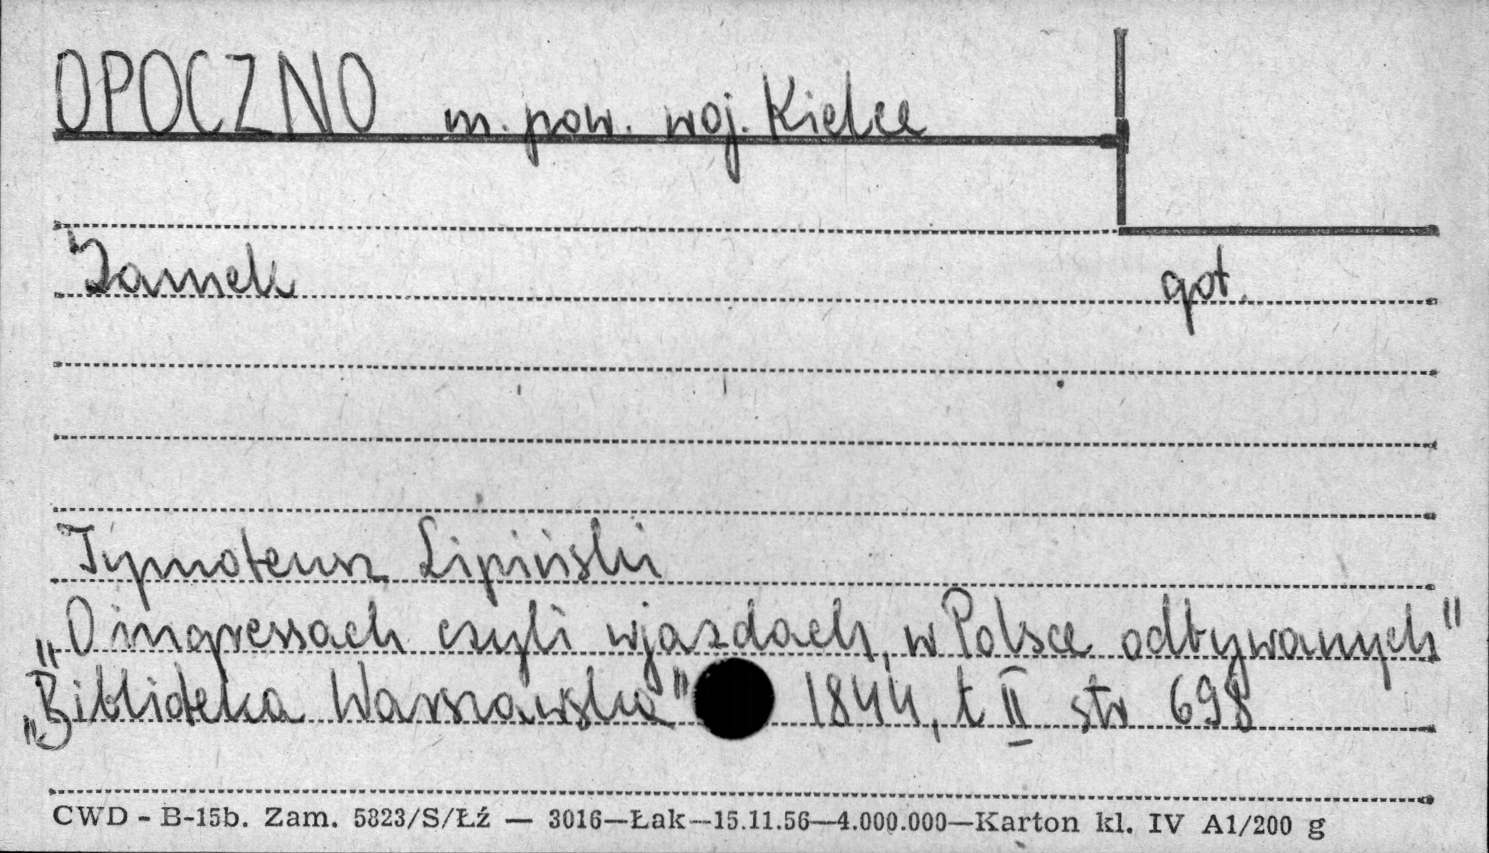 OPOCZNO m. pow. woj. Kielce
Zamek got.
Tymoteusz Lipiński
„O ingressach czyli wjazdach, w Polsce odbywanych"
„Biblioteka Warszawska" 1844, t II str 698
CWD - B-15b. Zam. 5823/S/Łź — 3016—Łak—15.11.56—4.000.000—Karton kl. IV A1/200 g